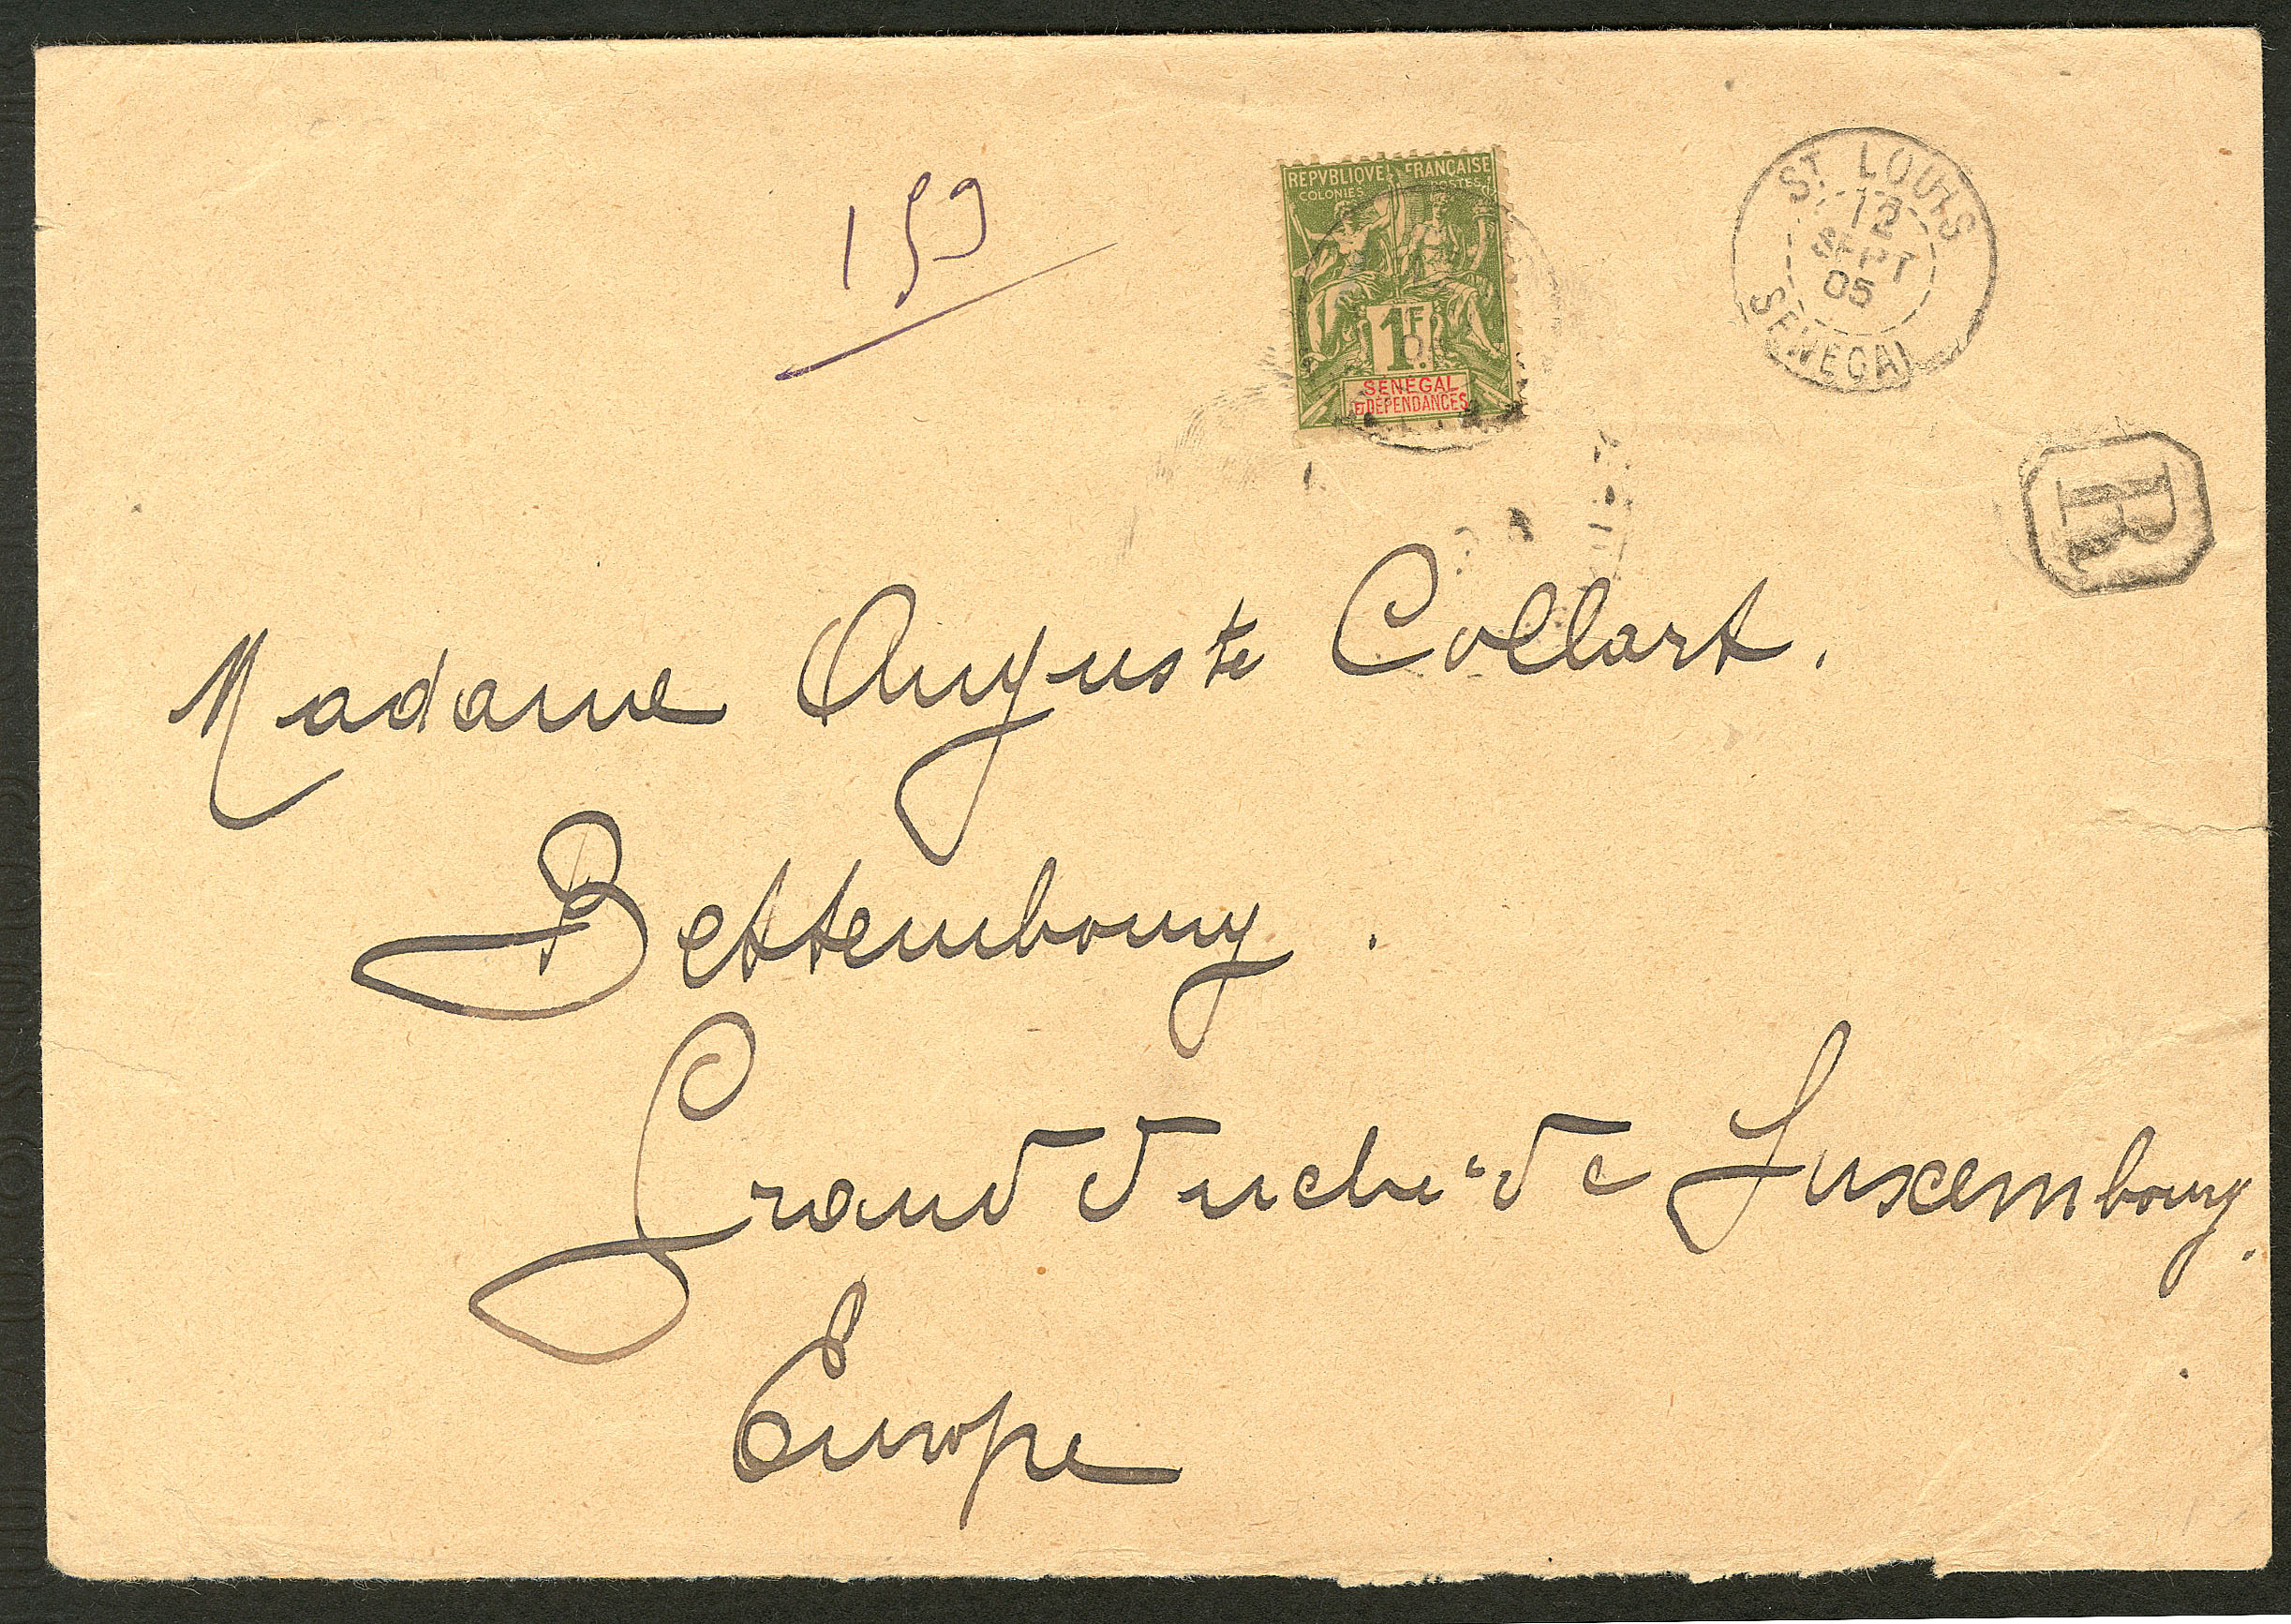 159
REPVBLIQVE FRANÇAISE
COLONIES POSTES
1F
SÉNÉGAL
ET DÉPENDANCES
ST LOUIS
12
SEPT
05
SENEGAL
R
Madame Auguste Collart.
Bettembourg.
Grand Duché de Luxembourg.
Europe